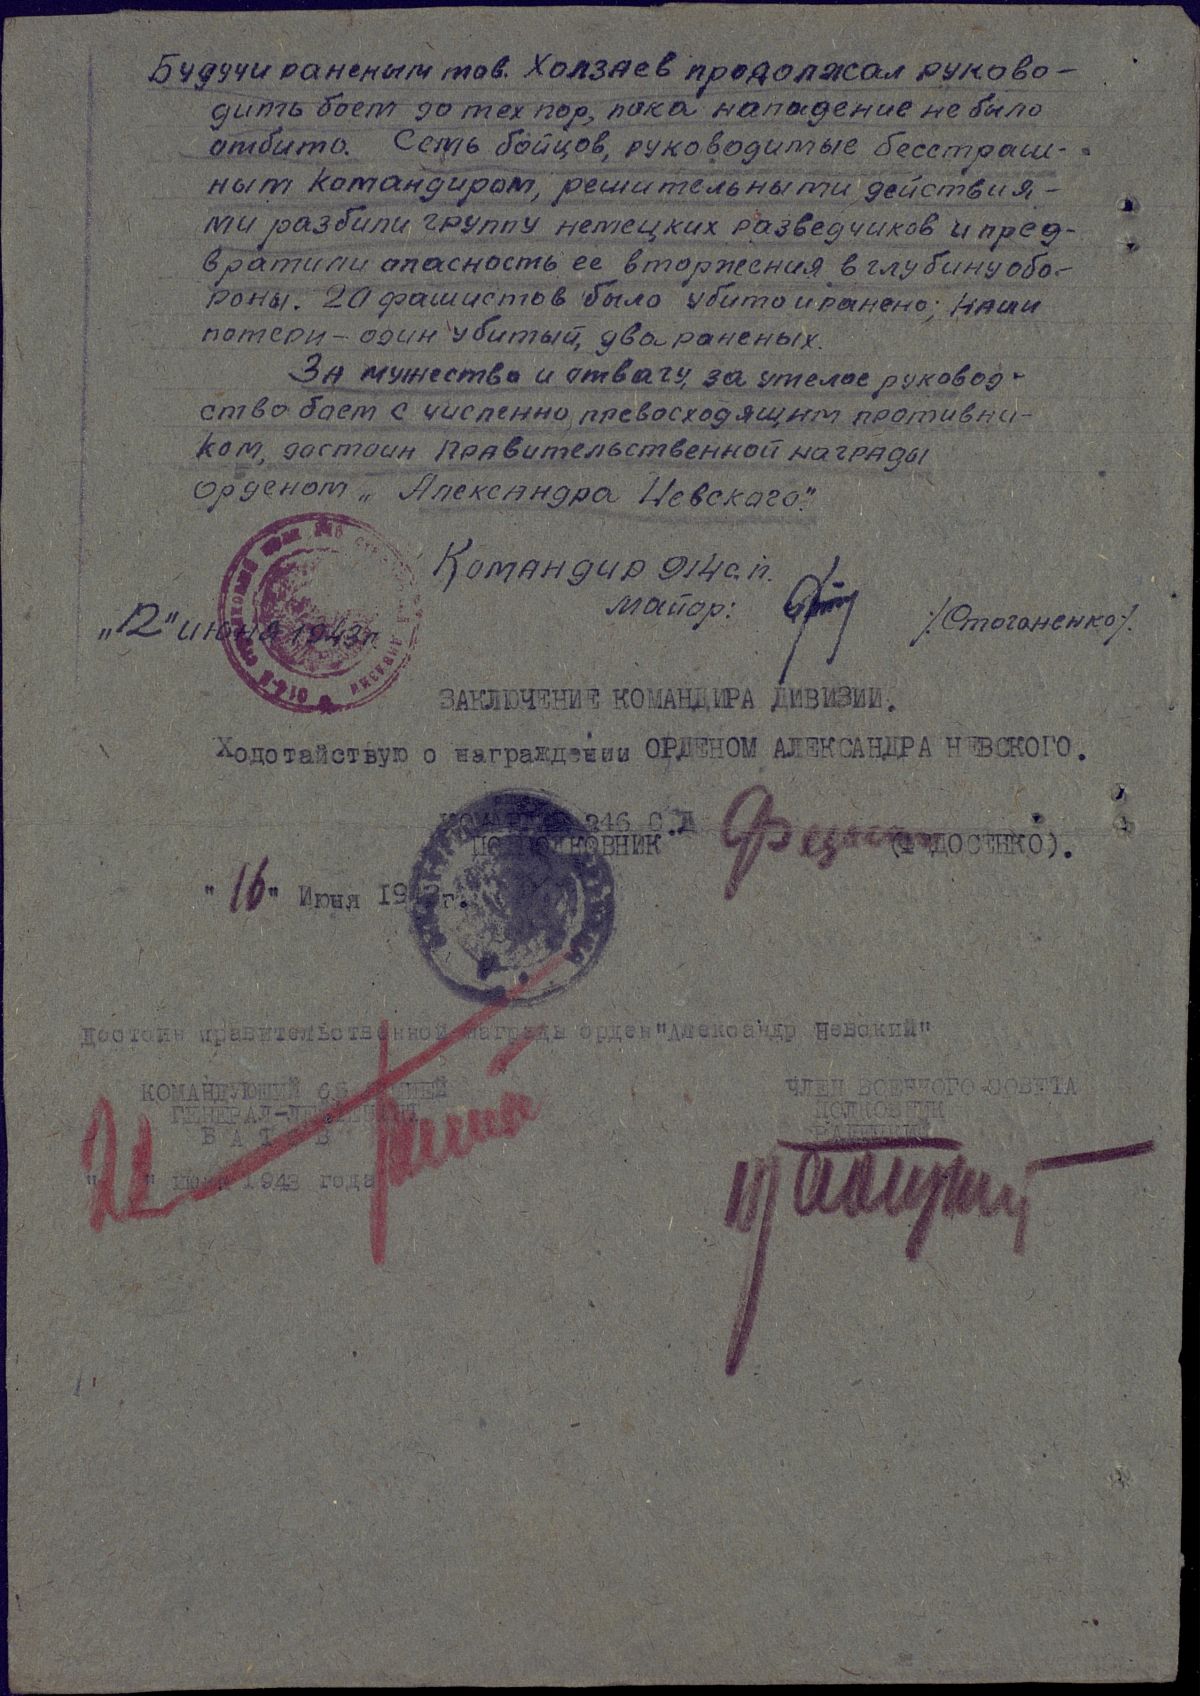 Будучи раненым тов. Холзаев продолжал руково-
дить боем до тех пор, пока нападение не было
отбито. Семь бойцов, руководимые бесстраш-
ным командиром, решительными действия-
ми разбили группу немецких разведчиков и пред-
вратили опасность ее вторжения в глубину обо-
роны. 20 фашистов было убито и ранено; наши
потери - один убитый, два раненых.
За мужество и отвагу, за умелое руковод-
ство боем с численно превосходящим противни-
ком, достоин правительственной награды
орденом „Александра Невского".
Командир 914 с.п.
майор: /Стоганенко/.
„12" июня 1943 г.
ЗАКЛЮЧЕНИЕ КОМАНДИРА ДИВИЗИИ.
Ходотайствую о награждении ОРДЕНОМ АЛЕКСАНДРА НЕВСКОГО.
КОМАНДИР 246 С.Д
ПОДПОЛКОВНИК (ФЕДОСЕНКО).
"16" Июня 1943 г.
Достоин правительственной награды орден "Александр Невский"
КОМАНДУЮЩИЙ 65 АРМИЕЙ
ГЕНЕРАЛ-ЛЕЙТЕНАНТ
БАТОВ
ЧЛЕН ВОЕННОГО СОВЕТА
ПОЛКОВНИК
РАДЕЦКИЙ
"22" июня 1943 года